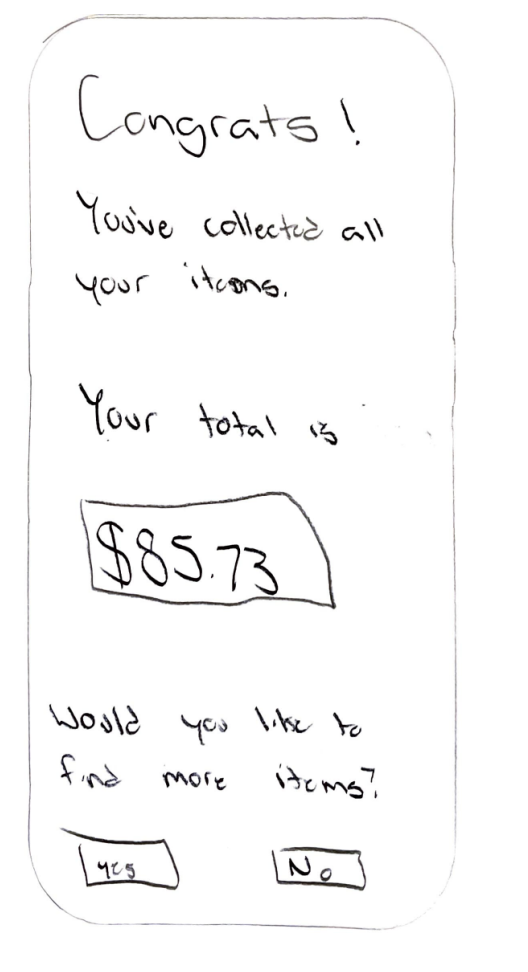 Congrats!
You've collected all
your items.
Your total is
$85.73
Would you like to
find more items?
yes
No